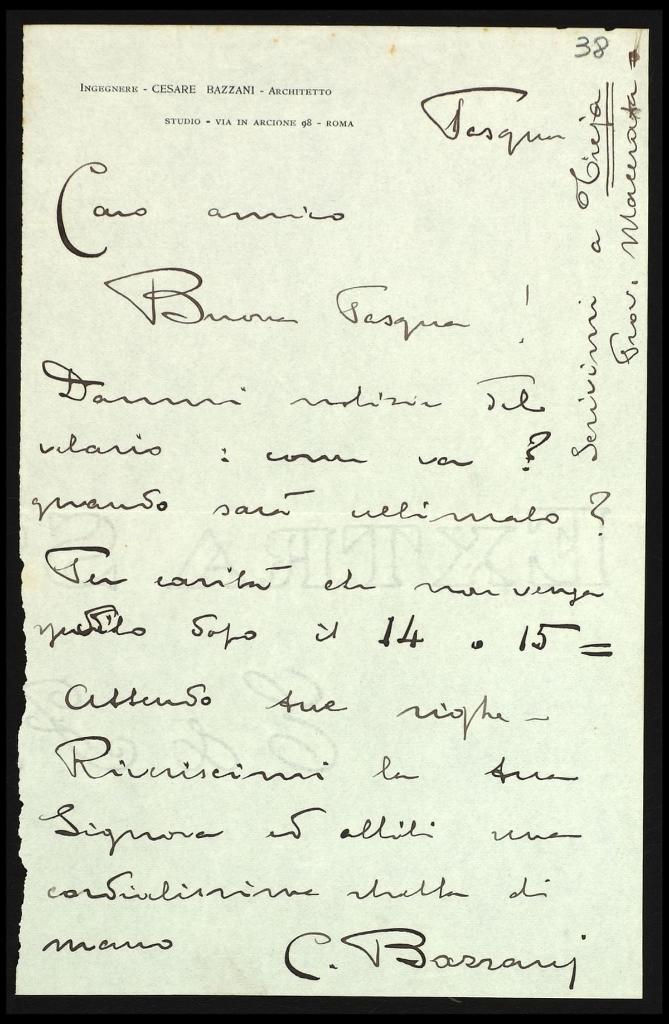 38
INGEGNERE - CESARE BAZZANI - ARCHITETTO
STUDIO - VIA IN ARCIONE 98 - ROMA
Pasqua
Scrivimi a Treja
Prov. Macerata =
Caro amico
Buona Pasqua !
Dammi notizie del
velario : come va ?
quando sarà ultimato ?
Per carità che non venga
spedito dopo il 14 o 15 =
Attendo tue righe -
Riveriscimi la tua
Signora ed abbiti una
cordialissima stretta di
mano C. Bazzani